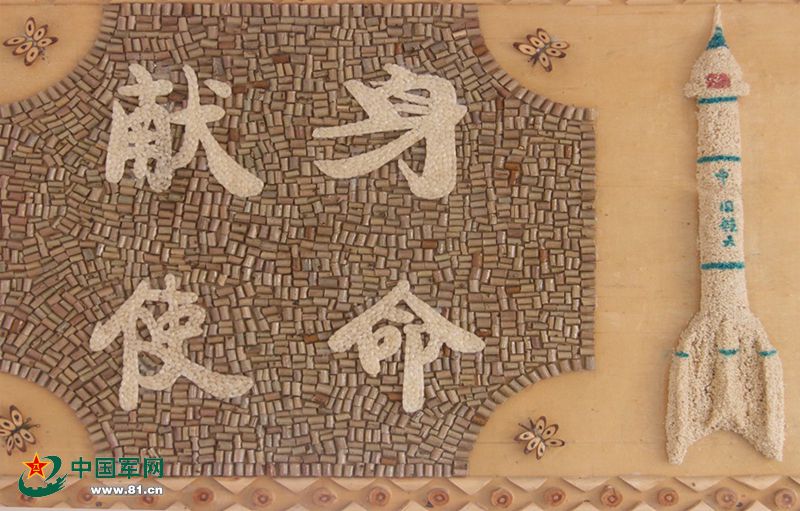 献身
使命
中国航天
中国军网
www.81.cn